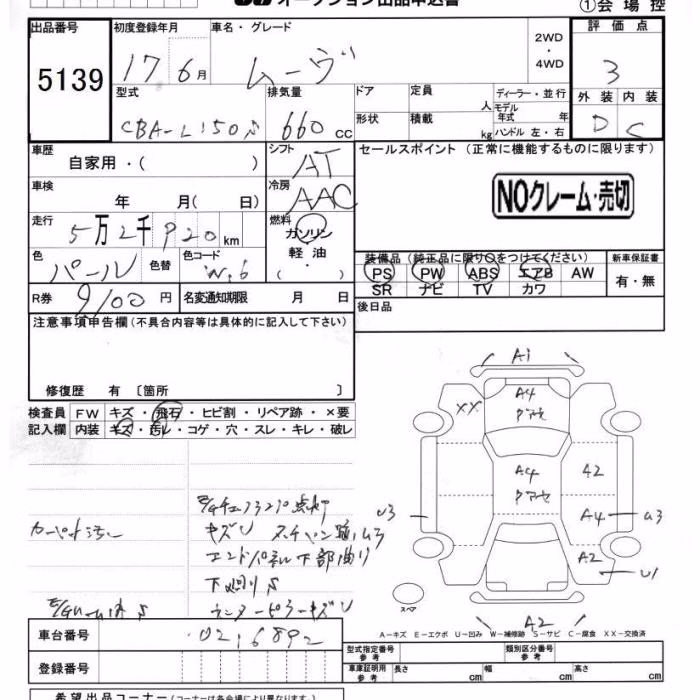 オークション出品申込書
①会場控
出品番号
5139
初度登録年月
17 6月
車名・グレード
ムーヴ
2WD
・
4WD
評価点
3
外装 内装
D C
型式
CBA-L150S
排気量
660 cc
ドア
形状
定員
人
積載
kg
ディーラー・並行
モデル
年式 年
ハンドル 左・右
車歴
自家用・( )
シフト
AT
セールスポイント(正常に機能するものに限ります)
NOクレーム・売切
車検
年 月( 日)
冷房
AAC
走行
5万2千920km
燃料
ガソリン
軽油
( ・ )
色
パール
色替
色コード
W16
装備品(純正品に限り○をつけてください)
PS PW ABS エアB AW
SR ナビ TV カワ
新車保証書
有・無
R券
9100円
名変通知期限 月 日
後日品
注意事項申告欄(不具合内容等は具体的に記入して下さい)
修復歴 有〔箇所 〕
検査員
記入欄
FW キズ・飛石・ヒビ割・リペア跡・×要
内装 キズ・汚レ・コゲ・穴・スレ・キレ・破レ
A1
A4
XX
A4
A2
U3
A4
A2
U1
A2
スペア
カーペット汚レ
下廻りS
A-キズ E-エクボ U-凹み W-補修跡 S-サビ C-腐食 XX-交換済
車台番号
登録番号
型式指定番号
参考
類別区分番号
参考
車庫証明用
参考
長さ cm
幅 cm
高さ cm
希望出品コーナー